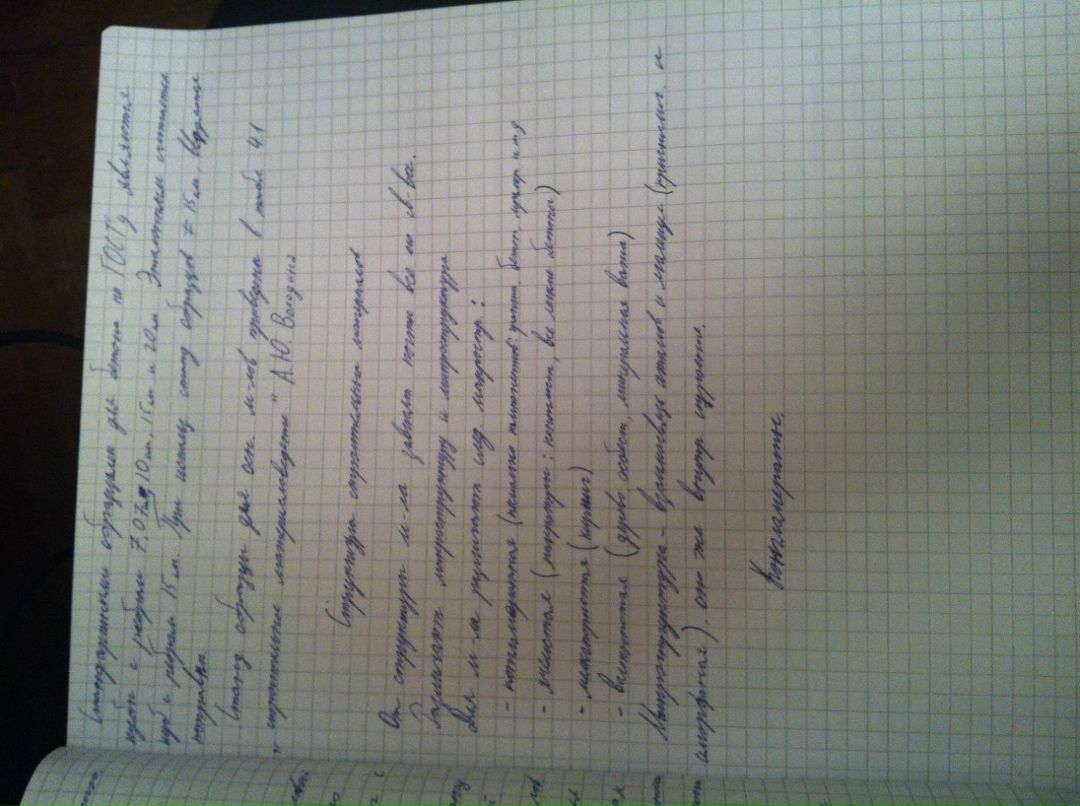 Стандартными образцами для бетона по ГОСТу являются
кубы с ребром 7,07 см, 10 см, 15 см и 20 см Эталонным считается
куб с ребром 15 см. При испыт станд образцов ≠ 15 см, вводятся
Станд образцы для осн. м-лов приведены в табл 4.1
"строительные материаловедение" А.Ю. Володина
Структура строительных материалов
От структуры м-ла зависят почти все его св-ва.
Различают макроструктуру и микроструктура
Для м-ла различают след макростр:
- конгломератная (цемент, бетон, и т.д
- ячеистая (макропоры: пенопласт, все легкие бетоны)
- мелкопористая (кирпич)
- волокнистая (древо, минеральная вата)
Микроструктура - взаимосвязь атомов и молекул (кристаллич. и
аморфная), от же внутр строение.